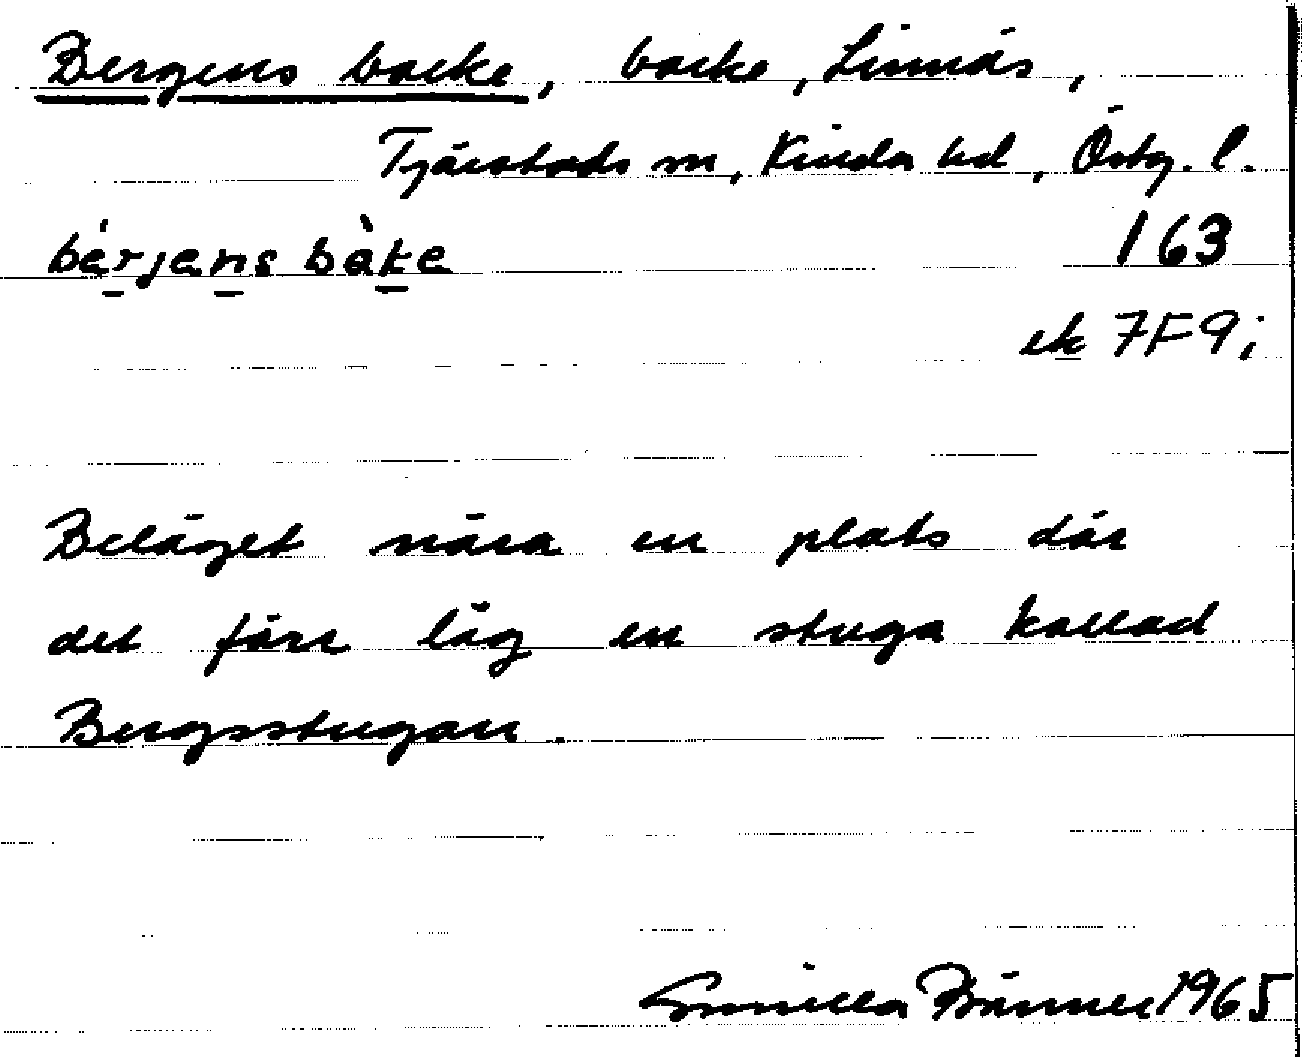 Bergens backe, backe, Linnäs,
Tjärstads sn, Kinda hd, Östg. l.
bèrjens bàke 163
ek 7F9i
Beläget nära en plats där
det förr låg en stuga kallad
Bergsstugan.
Gunilla 1965